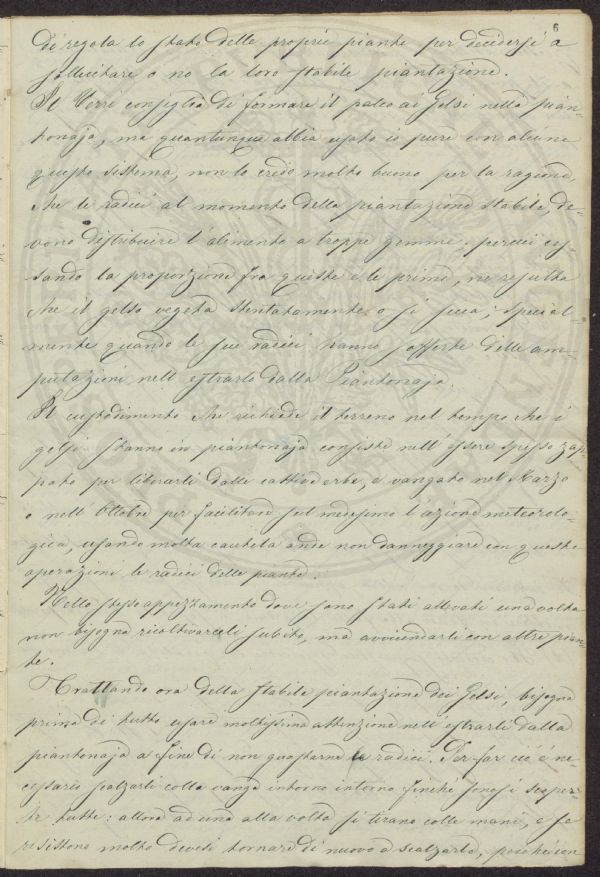 6
di regola lo stato delle proprie piante per decidersi a
sollicitare o no la loro stabile piantazione.
Il Verri consiglia di formare il palco ai Gelsi nella pian-
tonaja, ma quantunque abbia usato io pure con alcuni
questo sistema, non lo credo molto buono per la ragione,
che le radici al momento della piantazione stabile, de-
vono distribuire l'alimento a troppe gemme, perciò ces-
sando la proporzione fra queste e le prime, ne resulta
che il gelso vegeta stentatamente o si secca; special-
mente quando le sue radici hanno sofferte delle am-
putazioni nell'estrarlo dalla Piantonaja.
Il custodimento che richiede il terreno nel tempo che i
gelsi stanno in piantonaja consiste nell'essere spesso zap-
pato per liberarli dalle cattive erbe, e vangato nel Marzo
o nell'Ottobre per facilitare sul medesimo l'azione meteorolo-
gica, usando molta cautela onde non danneggiare con queste
operazioni le radici delle piante.
Nello stesso appezzamento dove sono stati allevati una volta
non bisogna ricoltivarceli subito, ma avvicendarli con altre pian-
te.
Trattando ora della stabile piantazione dei Gelsi, bisogna
prima di tutto usare moltissima attenzione nell'estrarli dalla
piantonaja a fine di non guastarne le radici. Per far ciò è ne-
cessario scalzarli colla vanga intorno intorno finché sonosi scoper-
te tutte: allora ad una alla volta si tirano colle mani, e se
resistono molto devesi tornare di nuovo a scalzarle, poiché con